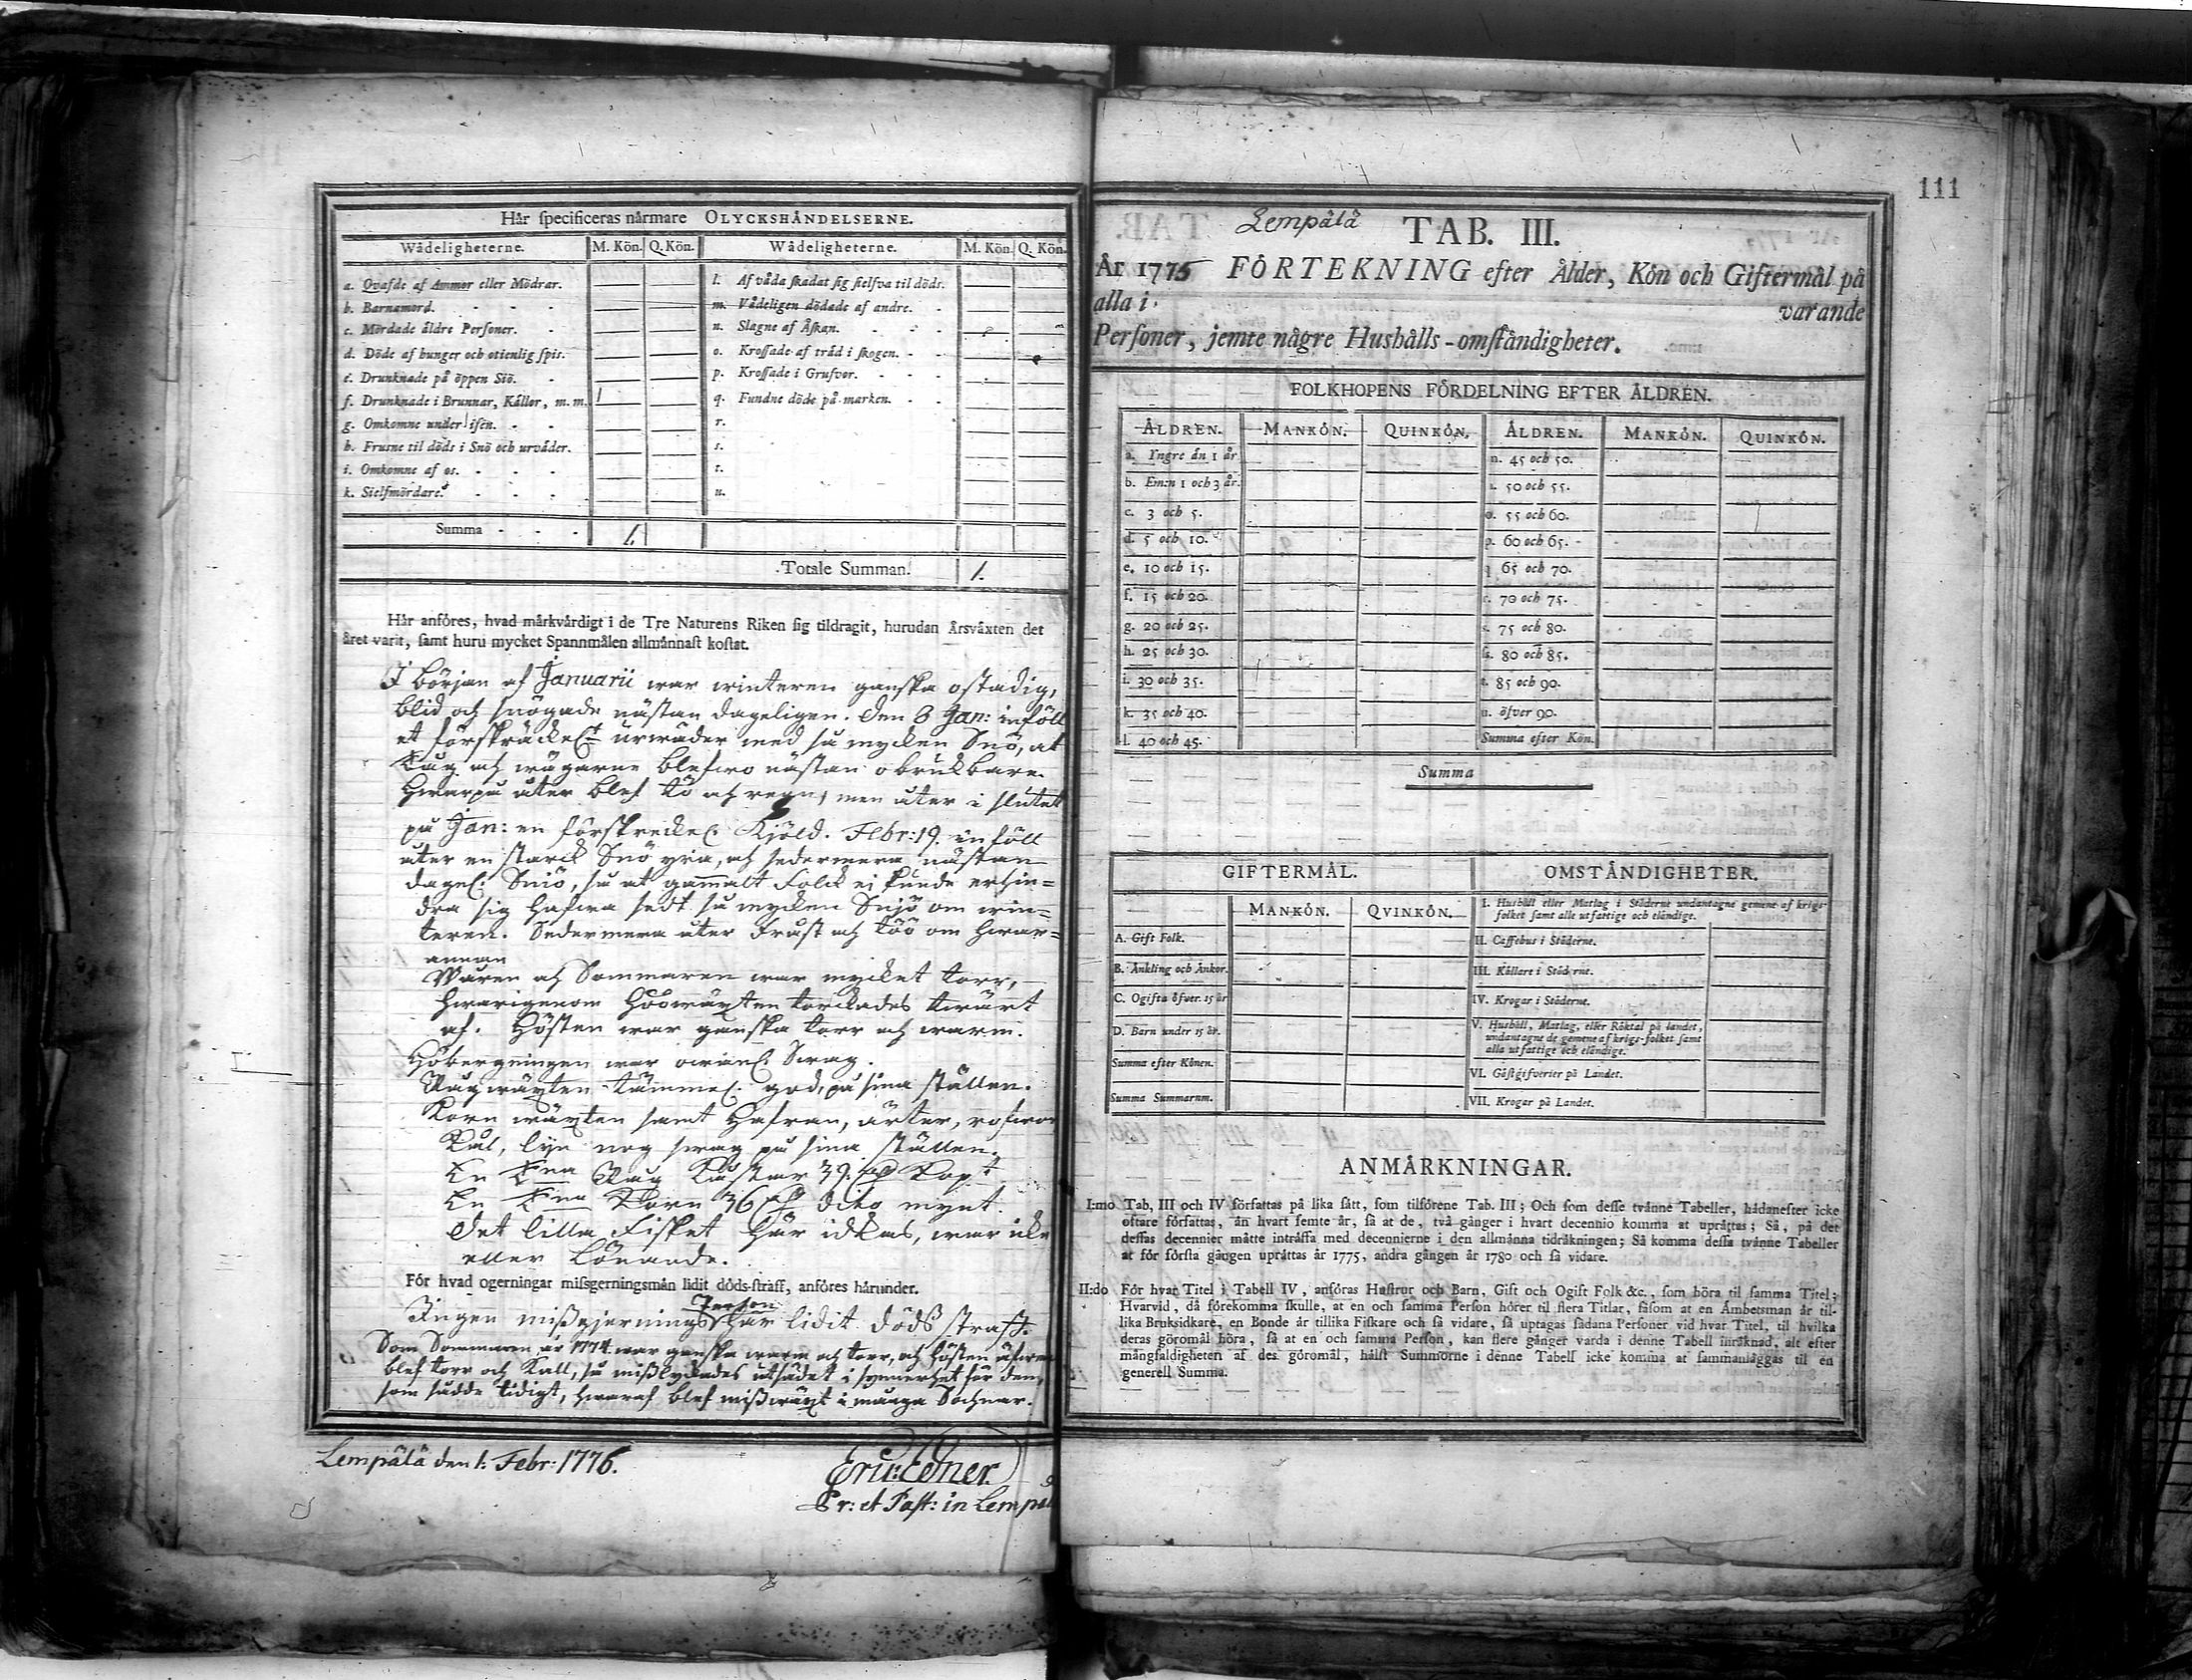 Här specificeras närmare OLYCKSHÄNDELSERNE.
Wådeligheterne. M. Kön. Q. Kön. Wådeligheterne. M. Kön. Q. Kön.
a. Qvafde af Ammor eller Mödrar.
b. Barnamord.
c. Mördade äldre Personer.
d. Döde af hunger och otienlig spis.
e. Drunknade på öppen Siö.
f. Drunknade i Brunnar, Källor, m. m. 1
g. Omkomne under isen.
h. Frusne til döds i Snö och urväder.
i. Omkomne af os.
k. Sielfmördare.
l. Af våda skadat sig sielfva til döds.
m. Vådeligen dödade af andre.
n. Slagne af Åskan.
o. Krossade af träd i skogen.
p. Krossade i Grufvor.
q. Fundne döde på marken.
r.
s.
t.
u.
Summa 1.
Totale Summan. 1.
Här anföres, hvad märkvärdigt i de Tre Naturens Riken sig tildragit, hurudan Årsväxten det
året varit, samt huru mycket Spannmålen allmännast kostat.
I början af Januarii war winteren ganska ostadig,
blid och snögade nästan dageligen. Den 8 Jan: inföll
et förskräckel:t urwäder med så mycken Snö, at
Råg och wägarne blefwo nästan obrukbare.
Hwarpå åter blef tö och regn, men åter i slutet
på Jan: en förskreckel: Kjöld. Febr: 19. inföll
åter en starck Snö yra, och sedermera nästan
dagel: Sniö, så at gammalt Folck ej kunde erhin=
dra sig hafwa sedt så mycken Snjö om win=
teren. Sedermera åter Fråst och töö om hwar=
annan
Wåren och Sommaren war mycket torr,
hwarigenom Höówäxten torckades twärt
af. Hösten war ganska torr och warm.
Höbergningen war owanl: Swag.
Rågwäxten tämmel: god, på sina ställen.
Korn wäxten samt Hafran, ärter, rofwor
Kål, lijn nog swag på sina ställen.
En Tna Råg Kåstar 39. Kopt
En Tna Korn 36 dito mynt.
Det lilla Fisket här idkas, war icke
eller Lönande.
För hvad ogerningar missgerningsmän lidit döds-straff, anföres härunder.
Ingen missgjernings Person har lidit döds straff.
Som Sommaren år 1774 war ganska warm och torr, och hösten äfwen
blef torr och Kall, så misslyckades utsädet i synnerhet för dem,
som sådde tidigt, hwaraf blef misswäxt i många Sochnar.
Lempälä den 1. Febr: 1776.
Eric: Edner.
Pr: et Past: in Lempäl
111
Lempälä TAB. III.
År 1775 FÖRTEKNING efter Ålder, Kön och Giftermål på
alla i varande
Personer, jemte någre Hushålls-omständigheter.
FOLKHOPENS FÖRDELNING EFTER ÅLDREN.
ÅLDREN. MANKÖN. QUINKÖN. ÅLDREN. MANKÖN. QUINKÖN.
a. Yngre än 1 år.
b. Emn 1 och 3 år.
c. 3 och 5.
d. 5 och 10.
e. 10 och 15.
f. 15 och 20.
g. 20 och 25.
h. 25 och 30.
i. 30 och 35.
k. 35 och 40.
l. 40 och 45.
n. 45 och 50.
50 och 55.
o. 55 och 60.
p. 60 och 65.
q 65 och 70.
r. 70 och 75.
s. 75 och 80.
80 och 85.
t. 85 och 90.
u. öfver 90.
Summa efter Kön.
Summa
GIFTERMÅL. OMSTÄNDIGHETER.
MANKÖN. QVINKÖN.
A. Gift Folk.
B. Änkling och Änkor.
C. Ogifta öfver 15 år
D. Barn under 15 år.
Summa efter Könen.
Summa Summarum.
I. Hushåll eller Matlag i Städerne undantagne gemene af krigs-
folket samt alle utfattige och eländige.
II. Caffehus i Städerne.
III. Källare i Städerne.
IV. Krogar i Städerne.
V. Hushåll, Matlag, eller Röktal på landet,
undantagne de gemene af krigs-folket samt
alla utfattige och eländige.
VI. Gästgifverier på Landet.
VII. Krogar på Landet.
ANMÄRKNINGAR.
I:mo Tab, III och IV författas på lika sätt, som tilförene Tab. III; Och som desse tvänne Tabeller, hädanefter icke
oftare författas, än hvart femte år, så at de, två gånger i hvart decennio komma at uprättas; Så, på det
dessas decennier måtte inträffa med decennierne i den allmänna tidräkningen; Så komma dessa tvänne Tabeller
at för första gången uprättas år 1775, andra gången år 1780 och så vidare.
II:do För hvar Titel i Tabell IV, anföras Hustrur och Barn, Gift och Ogift Folk &c., som höra til samma Titel;
Hvarvid, då förekomma skulle, at en och samma Person hörer til flera Titlar, såsom at en Ämbetsman är til-
lika Bruksidkare, en Bonde är tillika Fiskare och så vidare, så uptagas sådana Personer vid hvar Titel, til hvilka
deras göromål höra, så at en och samma Person, kan flere gånger varda i denne Tabell inräknad, alt efter
mångfaldigheten af des göromål, hälst Summorne i denne Tabell icke komma at sammanläggas til en
generell Summa.